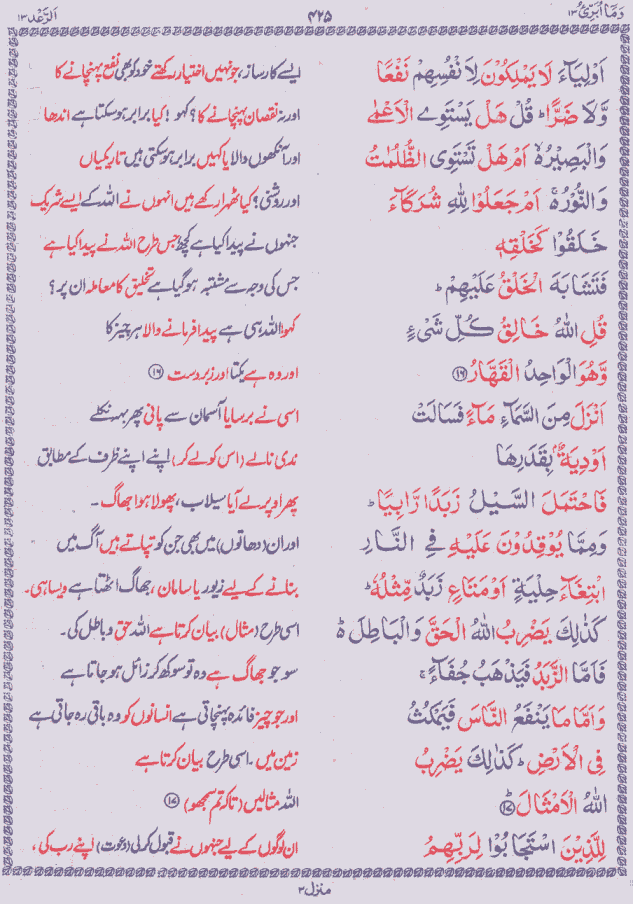 وَمَآ اُبَرِّئُ ۱۳
۴۲۵
اَلرَّعْد ۱۳
اَوْلِيَآءَ لَا يَمْلِكُوْنَ لِاَنْفُسِهِمْ نَفْعًا
ایسے کارساز، جو نہیں اختیار رکھتے خود کو بھی نفع پہنچانے کا
وَّلَا ضَرًّا ؕ قُلْ هَلْ يَسْتَوِے الْاَعْمٰے
اور نہ نقصان پہنچانے کا؟ کہو! کیا برابر ہوسکتا ہے اندھا
وَالْبَصِيْرُ ۙ اَمْ هَلْ تَسْتَوِی الظُّلُمٰتُ
اور آنکھوں والا یا کہیں برابر ہوسکتی ہیں تاریکیاں
وَالنُّوْرُ ۚ اَمْ جَعَلُوْا لِلّٰهِ شُرَكَآءَ
اور روشنی؟ کیا ٹھہرا رکھے ہیں انہوں نے اللہ کے ایسے شریک
خَلَقُوْا كَخَلْقِهٖ
جنہوں نے پیدا کیا ہے کچھ جس طرح اللہ نے پیدا کیا ہے
فَتَشَابَهَ الْخَلْقُ عَلَيْهِمْ ؕ
جس کی وجہ سے مشتبہ ہوگیا ہے تخلیق کا معاملہ ان پر؟
قُلِ اللّٰهُ خَالِقُ كُلِّ شَیْءٍ
کہو! اللہ ہی ہے پیدا فرمانے والا ہر چیز کا
وَّهُوَ الْوَاحِدُ الْقَهَّارُ ۱۶
اور وہ ہے یکتا اور زبردست ۱۶
اَنْزَلَ مِنَ السَّمَآءِ مَآءً فَسَالَتْ
اسی نے برسایا آسمان سے پانی پھر بہہ نکلے
اَوْدِيَةٌۢ بِقَدَرِهَا
ندی نالے (اس کو لے کر) اپنے اپنے ظرف کے مطابق
فَاحْتَمَلَ السَّيْلُ زَبَدًا رَّابِيًا ؕ
پھر اوپر لے آیا سیلاب، پھولا ہوا جھاگ ۔
وَمِمَّا يُوْقِدُوْنَ عَلَيْهِ فِے النَّارِ
اور ان (دھاتوں) میں بھی جن کو تپاتے ہیں آگ میں
ابْتِغَآءَ حِلْيَةٍ اَوْ مَتَاعٍ زَبَدٌ مِّثْلُهٗ ؕ
بنانے کے لیے زیور یا سامان، جھاگ اٹھتا ہے ویسا ہی۔
كَذٰلِكَ يَضْرِبُ اللّٰهُ الْحَقَّ وَالْبَاطِلَ ؕ
اسی طرح (مثال) بیان کرتا ہے اللہ حق و باطل کی۔
فَاَمَّا الزَّبَدُ فَيَذْهَبُ جُفَآءً ۚ
سو جو جھاگ ہے وہ تو سوکھ کر زائل ہو جاتا ہے
وَاَمَّا مَا يَنْفَعُ النَّاسَ فَيَمْكُثُ
اور جو چیز فائدہ پہنچاتی ہے انسانوں کو وہ باقی رہ جاتی ہے
فِی الْاَرْضِ ؕ كَذٰلِكَ يَضْرِبُ
زمین میں ۔ اسی طرح بیان کرتا ہے
اللّٰهُ الْاَمْثَالَ ؕ ۱۷
اللہ مثالیں (تاکہ تم سمجھو) ۱۷
لِلَّذِيْنَ اسْتَجَابُوْا لِرَبِّهِمُ
ان لوگوں کے لیے جنہوں نے قبول کرلی (دعوت) اپنے رب کی،
منزل ۳